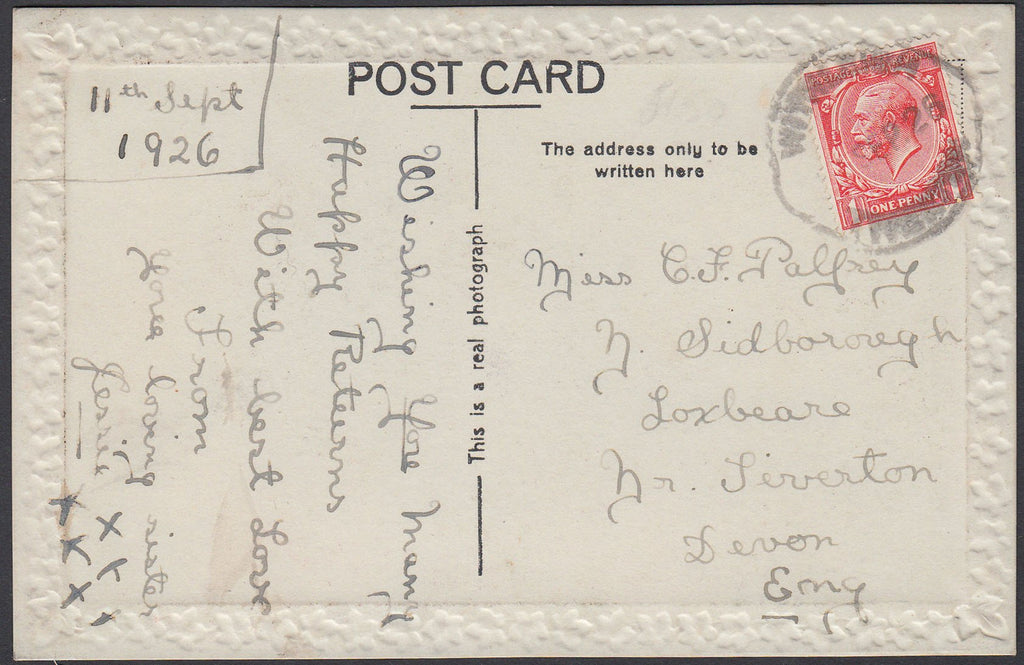 POST CARD
11th Sept
1926
The address only to be
written here
This is a real photograph
POSTAGE REVENUE
1 ONE PENNY 1
Wishing You Many
Happy Returns
With best Love
From
Your loving sister
Jessie x x x
x x x
Miss C.F. Palfrey
N. Sidborough
Loxbeare
Nr. Tiverton
Devon
Eng